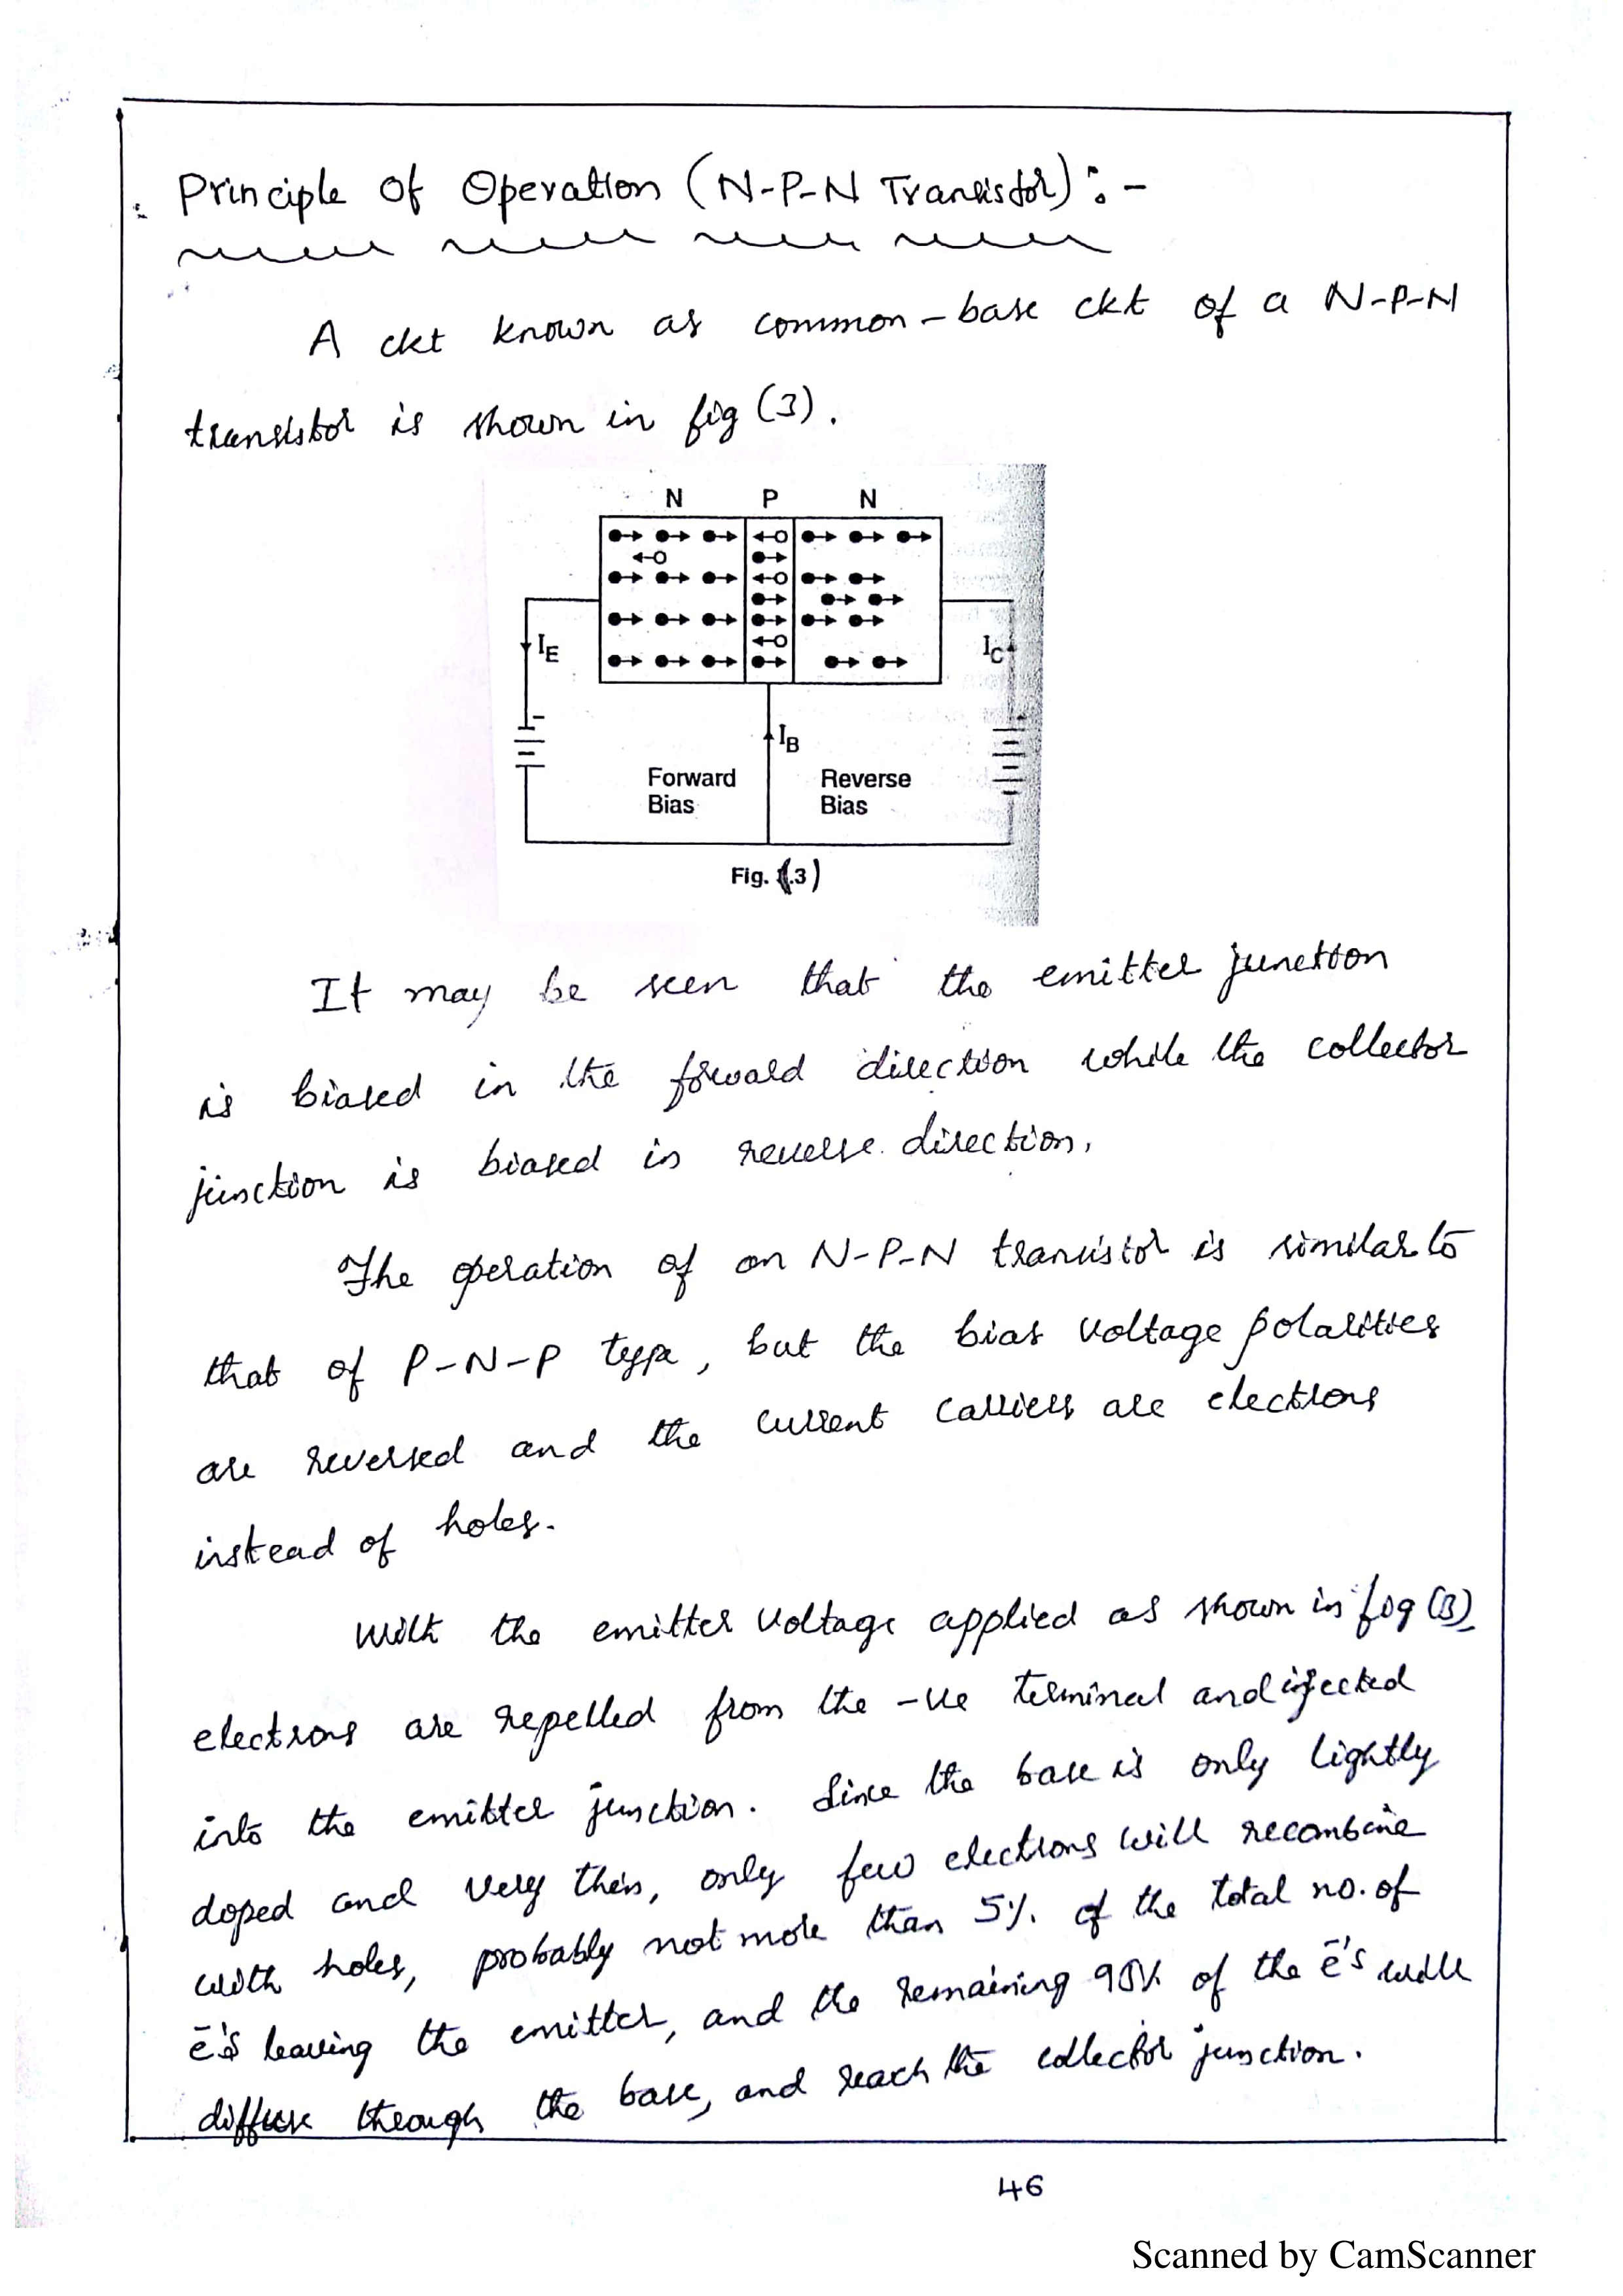 Principle Of Operation (N-P-N Transistor) :-
A ckt known as common-base ckt of a N-P-N
transistor is shown in fig (3).
N P N
IE
IC
IB
Forward Bias
Reverse Bias
Fig. (.3)
It may be seen that the emitter junction
is biased in the forward direction while the collector
junction is biased in reverse direction.
The operation of an N-P-N transistor is similar to
that of P-N-P type, but the bias voltage polarities
are reversed and the current carriers are electrons
instead of holes.
With the emitter voltage applied as shown in fig (3)
electrons are repelled from the -ve terminal and injected
into the emitter junction. Since the base is only lightly
doped and very thin, only few electrons will recombine
with holes, probably not more than 5% of the total no. of
ē's leaving the emitter, and the remaining 95% of the ē's will
diffuse through the base, and reach the collector junction.
46
Scanned by CamScanner